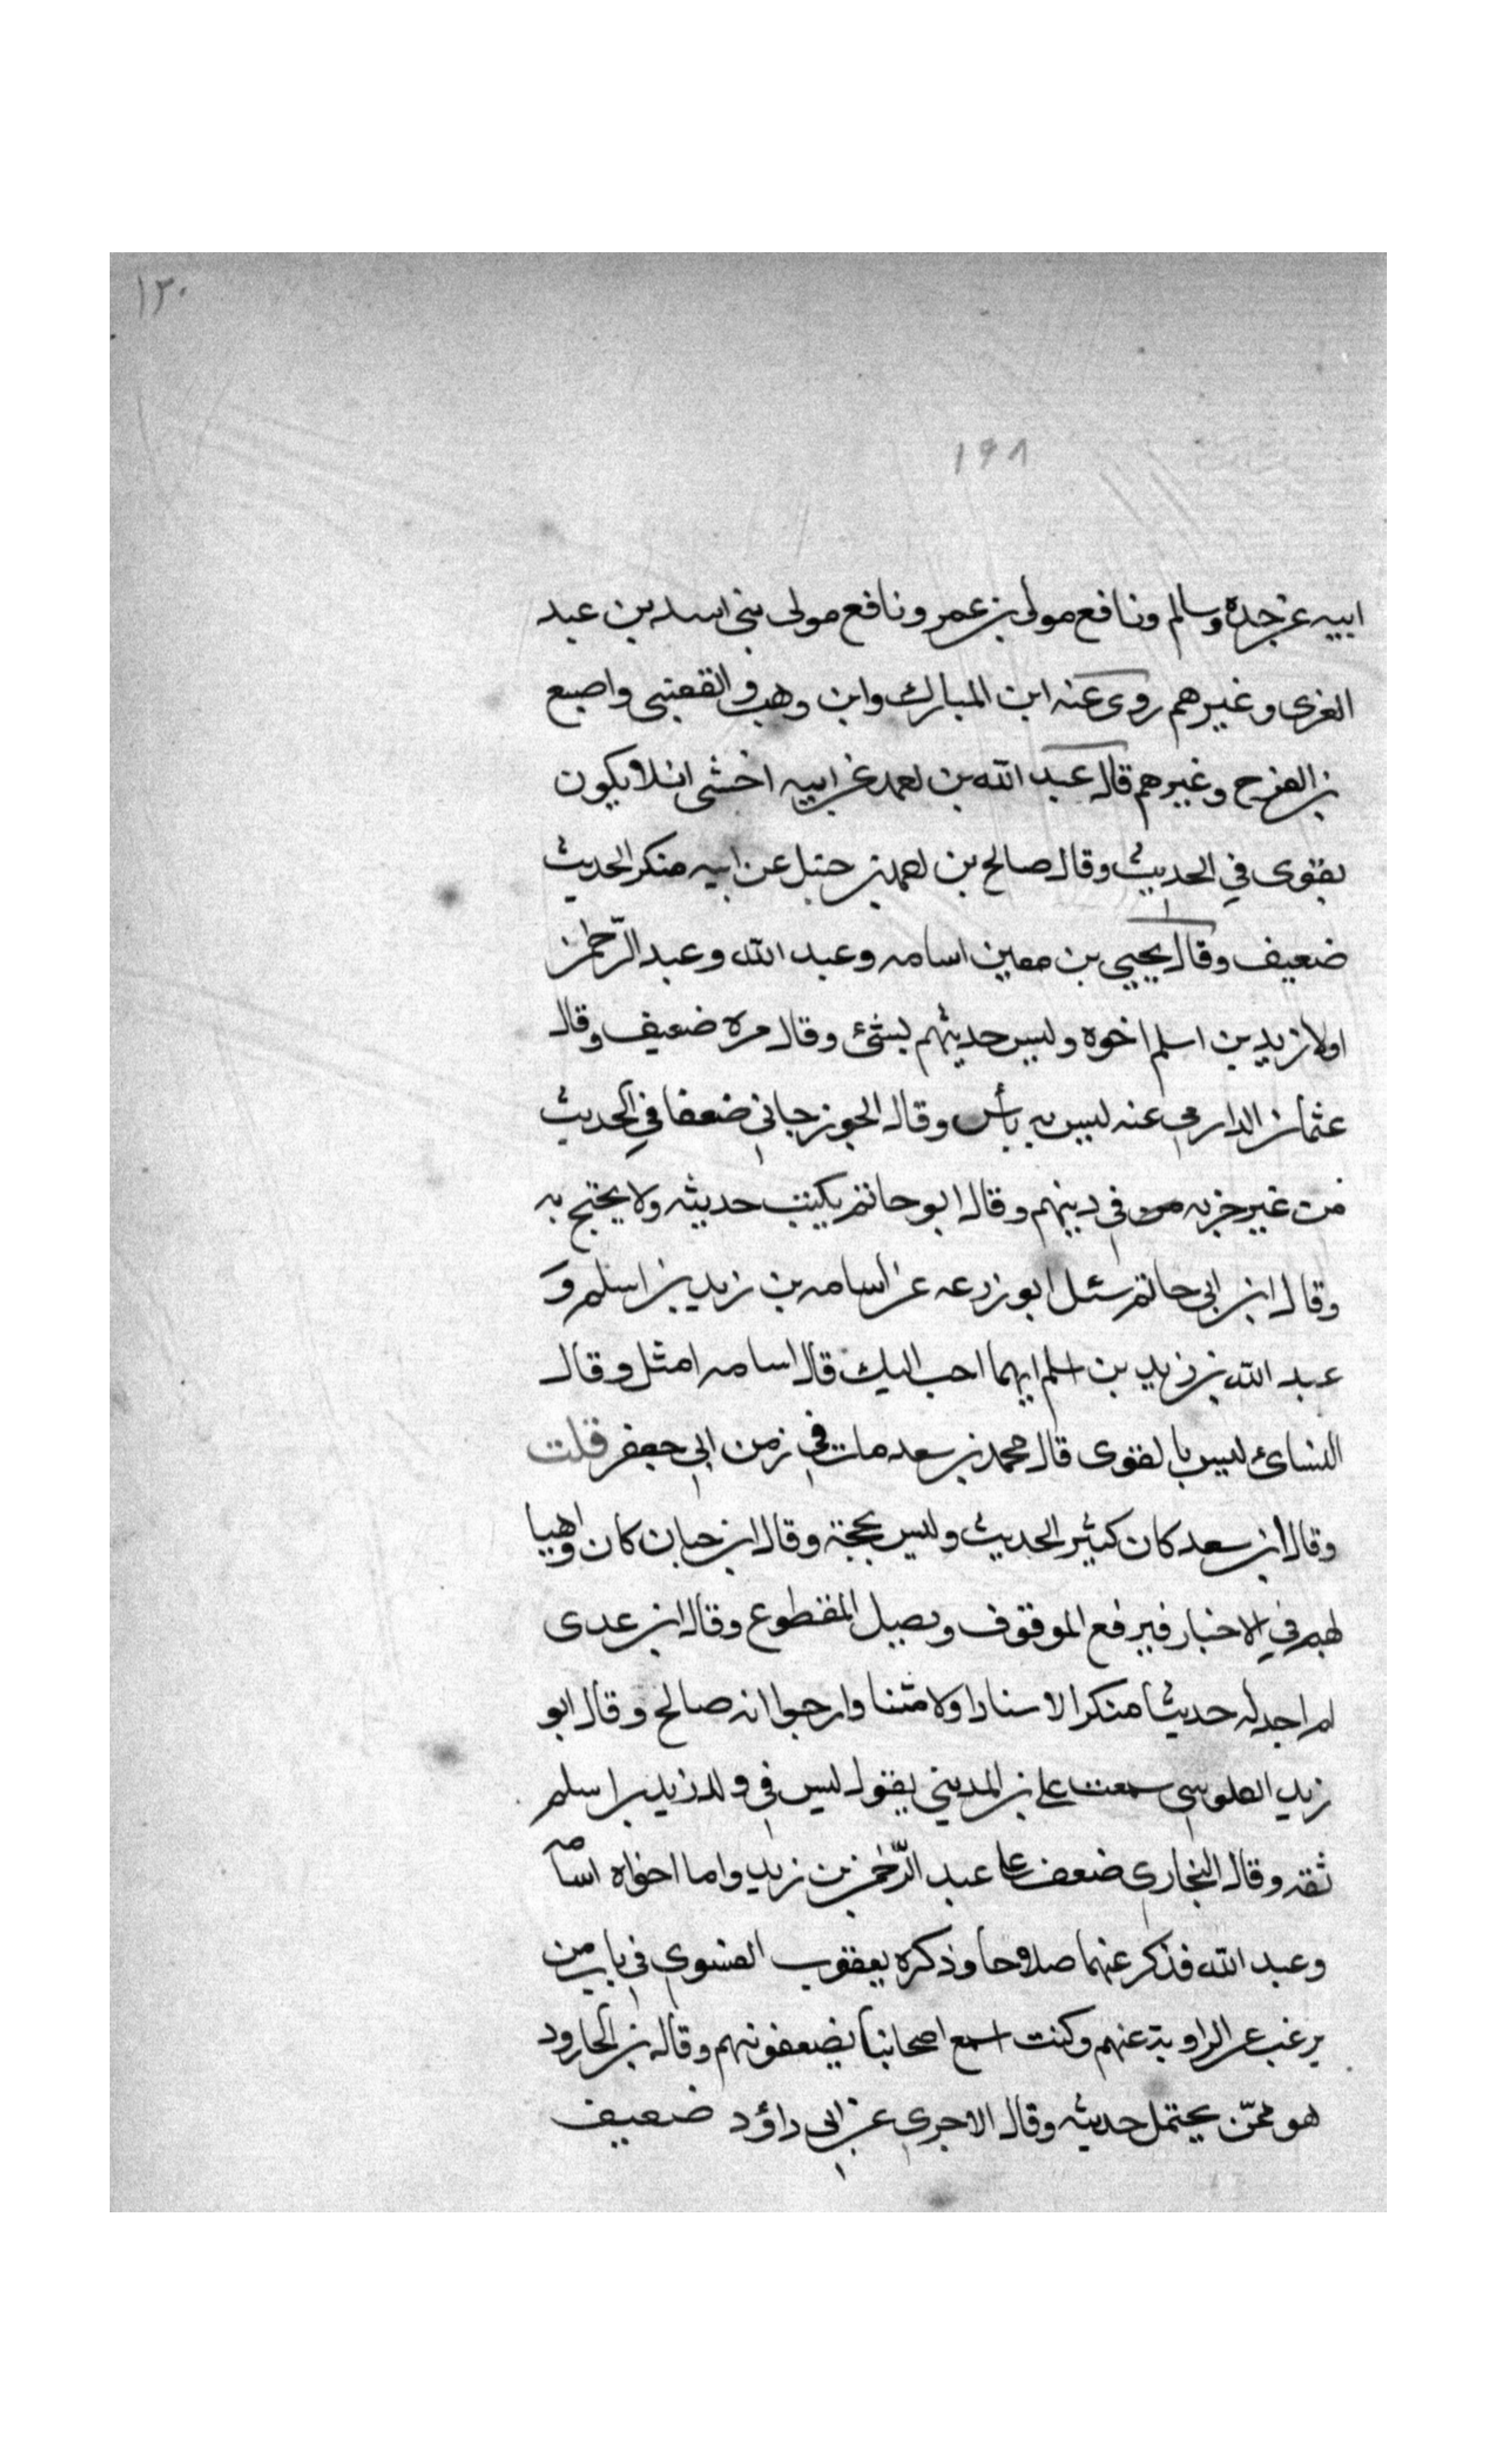 ١٢٠
١٩٨
ابيه عن جده وسالم ونافع مولى بن عمر ونافع مولى بنى اسد بن عبد
العزى وغيرهم روى عنه ابن المبارك وابن وهب والقعنبى واصبع
بن الفرح وغيرهم قال عبد الله بن احمد عن ابيه اخشى ان لا يكون
بقوى في الحديث وقال صالح بن احمد بن حنبل عن ابيه منكر الحديث
ضعيف وقال يحيى بن معين اسامه وعبد الله وعبد الرّحمن
اولا زيد بن اسلم اخوه وليس حديثهم بشئ وقال مره ضعيف وقال
عثمان الدارمي عنه ليس به بأس وقال الجوزجاني ضعفا في الحديث
من غير خربه في دينهم وقال ابو حاتم يكتب حديثه ولا يحتج به
وقال ابن ابي حاتم سئل ابو زرعه عن اسامه بن زيد بن اسلم و
عبد الله بن زيد بن اسلم ايهما احب اليك قال اسامه امثل وقال
النسائ ليس بالقوى قال محمد بن سعد مات في زمن ابي جعفر قلت
وقال ابن سعد كان كثير الحديث وليس بحجة وقال ابن حبان كان واهيا
لهم في الاخبار فيرفع الموقوف ويصل المقطوع وقال ابن عدى
لم اجد له حديثا منكر الاسنادا ولا متنا وارجوا انه صالح وقال ابو
زيد العلوسي سمعت على بن المديني يقول ليس في ولد زيد بن اسلم
ثقه وقال البخاري ضعف على عبد الرّحمن بن زيد واما اخواه اسامه
وعبد الله فذكر عنهما صلاحا وذكره يعقوب الفسوي في باب من
يرغب عن الراوية عنهم وكنت اسمع اصحابنا يضعفونهم وقال بن الجارود
هو ممّن يحتمل حديثه وقال الاجرى عن ابي داؤد ضعيف